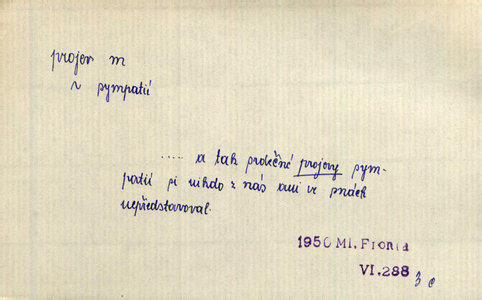 projev m
v sympatií
..... a tak srdečné projevy sym-
patií si nikdo z nás ani ve snách
nepředstavoval.
1950 Ml. Fronta
VI.288
3 c